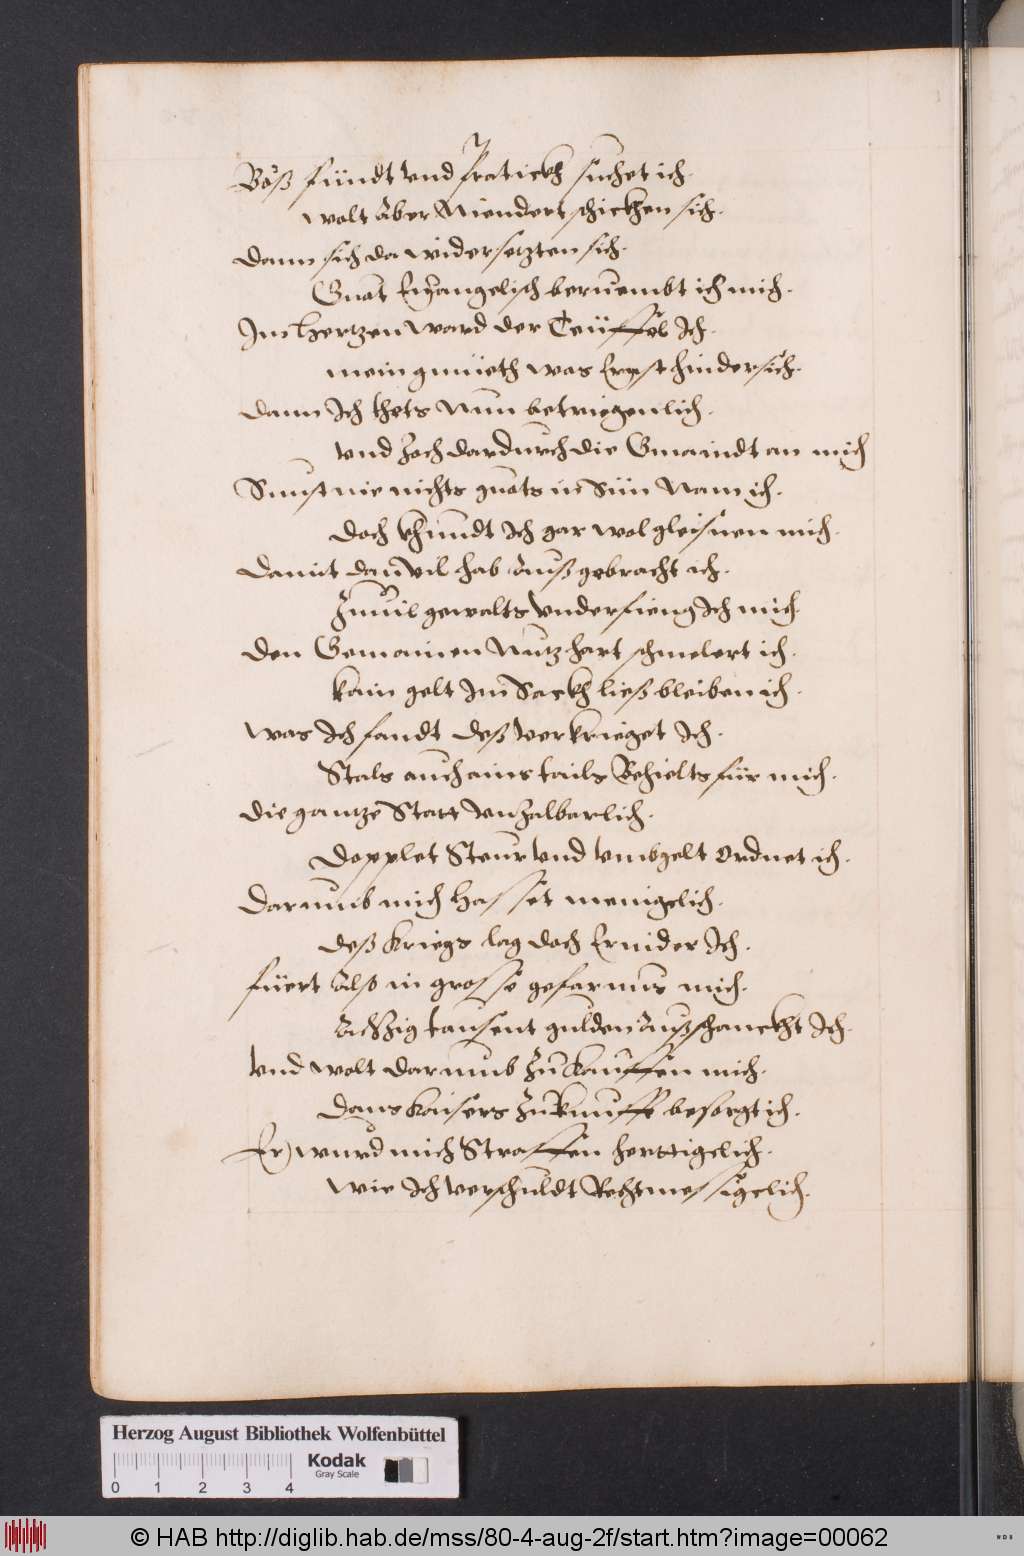 Böß fündt vnd Pratickh suchet ich.
wolt Aber Niendert schickhen sich.
dann sich da widersetzten sich.
Guat Euangelisch beruembt ich mich.
Im Hertzen ward der Teüffel Ich.
mein gmüeth was Ernst hindersich.
dann Ich thets Nun betriegenlich.
vnd Zoch dardurch die Gmaindt an mich
Sunst nie nichts guets in Sün Nam ich.
doch khundt Ich gar wol gleisnen mich.
damit dan vil hab Auß gebracht ich.
Zuuil gewalts vnderfieng Ich mich
den Gemainen Nutz hart schmelert ich.
kain gelt Im Sackh ließ bleiben ich.
was Ich fandt deß verkrieget Ich.
Stals auch ains tails Behielts für mich.
die gantze Statt vnzalbarlich.
dopplet Steur vnd vmbgelt ordnet ich.
darumb mich Hasset menigelich.
deß Kriegs lag doch Ernider Ich.
füert Also in grosse gefarnus mich.
Achtzig tausent gulden Außschanckht Ich.
vnd wolt darumb Zu kauffen mich.
dans Kaisers Zukunfft besorgt ich.
Er wurd mich Straffen herttigelich.
wie Ich verschuldt Rechtmessigelich.
Herzog August Bibliothek Wolfenbüttel
Kodak
Gray Scale
0 1 2 3 4
© HAB http://diglib.hab.de/mss/80-4-aug-2f/start.htm?image=00062